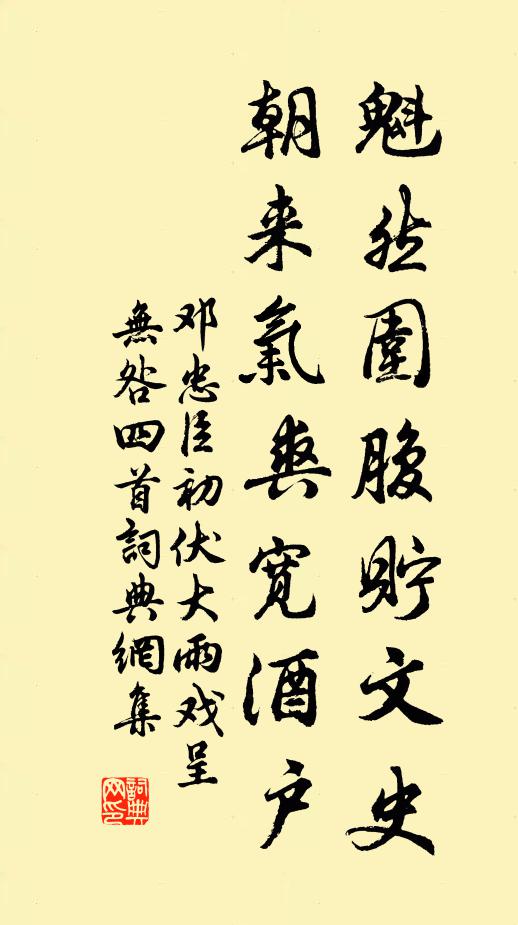 魁然圍腹貯文史
朝来氣爽寬酒户
邓忠臣初伏大雨戏呈
無咎四首詞典網集
詞典
网印